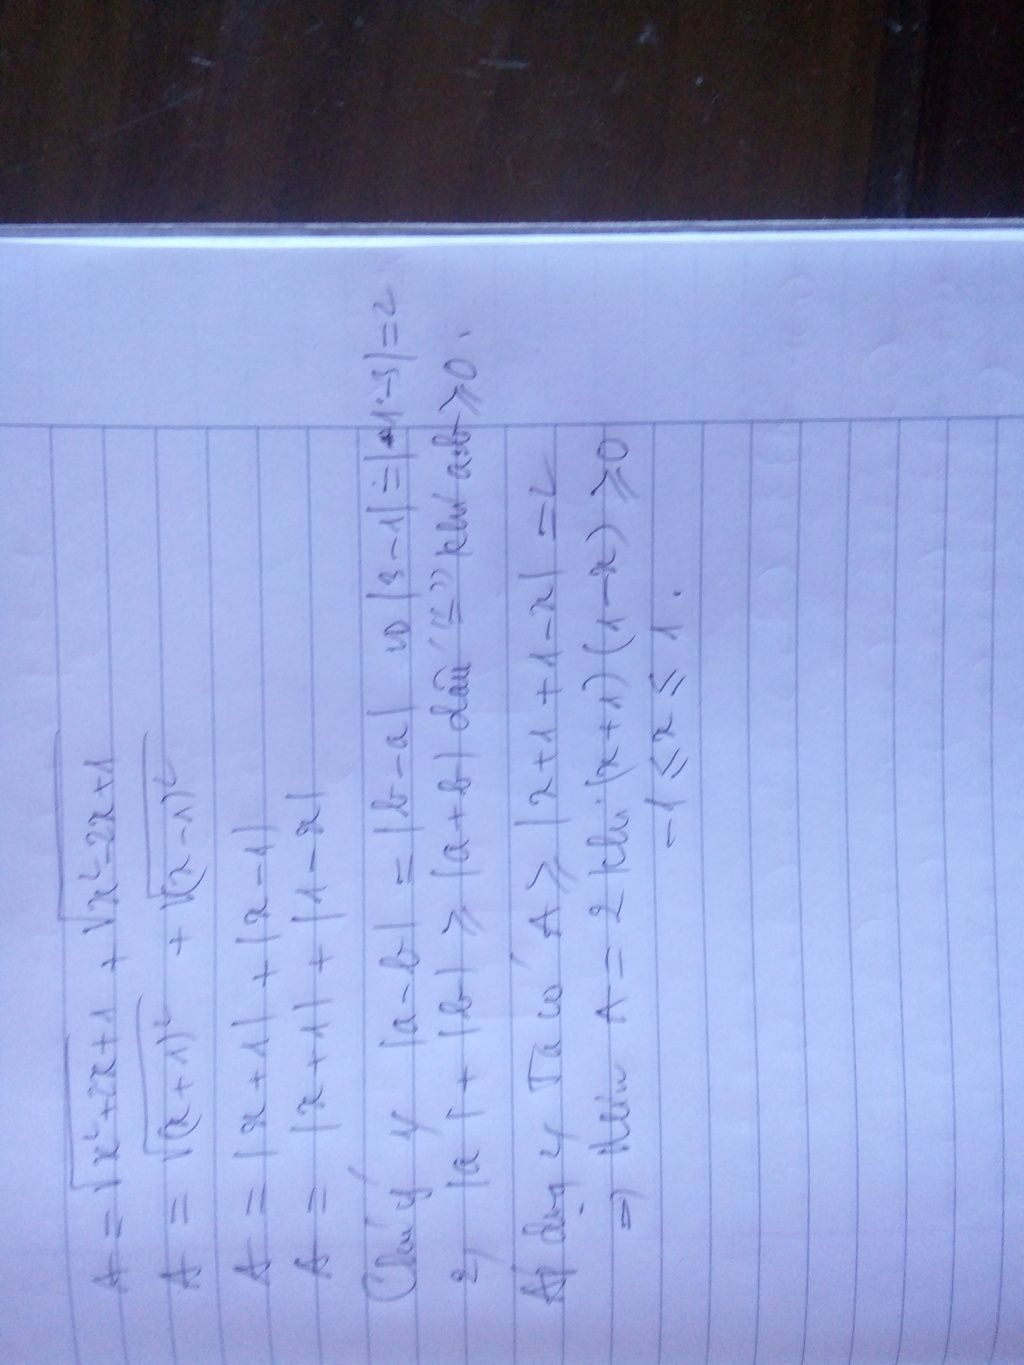 A = √x²+2x+1 + √x²-2x+1
A = √(x+1)² + √(x-1)²
A = |x+1| + |x-1|
A = |x+1| + |1-x|
Chú ý 1, |a-b| = |b-a| vd |3-1| = |1-3| = 2
2, |a| + |b| ≥ |a+b| dấu "=" khi a.b ≥ 0.
Áp dụng 2, Ta có A ≥ |x+1+1-x| = 2
⇒ Min A = 2 khi (x+1)(1-x) ≥ 0
-1 ≤ x ≤ 1.